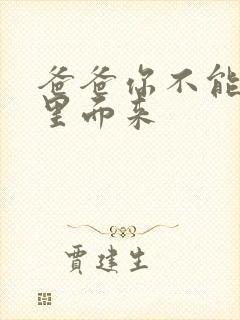 爸爸你不能
里而来
贾建生